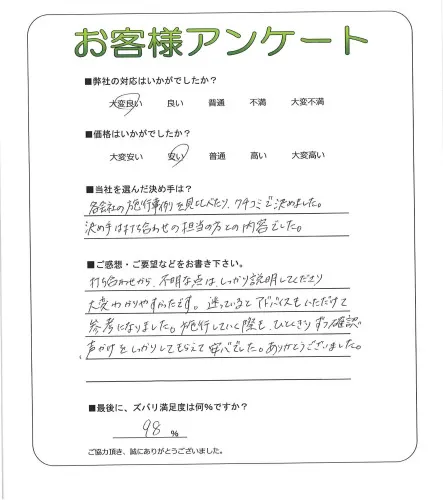 お客様アンケート
■弊社の対応はいかがでしたか？
大変良い 良い 普通 不満 大変不満
■価格はいかがでしたか？
大変安い 安い 普通 高い 大変高い
■当社を選んだ決め手は？
各会社の施行事例を見比べたり、クチコミで決めました。
決め手は打ち合わせの担当の方との内容でした。
■ご感想・ご要望などをお書き下さい。
打ち合わせから、不明な点はしっかり説明してくださり
大変わかりやすかったです。迷っているとアドバイスもいただけて
参考になりました。施行していく際も、ひとつひとつ確認、
声かけをしっかりしてもらえて安心でした。ありがとうございました。
■最後に、ズバリ満足度は何%ですか？
98 %
ご協力頂き、誠にありがとうございました。